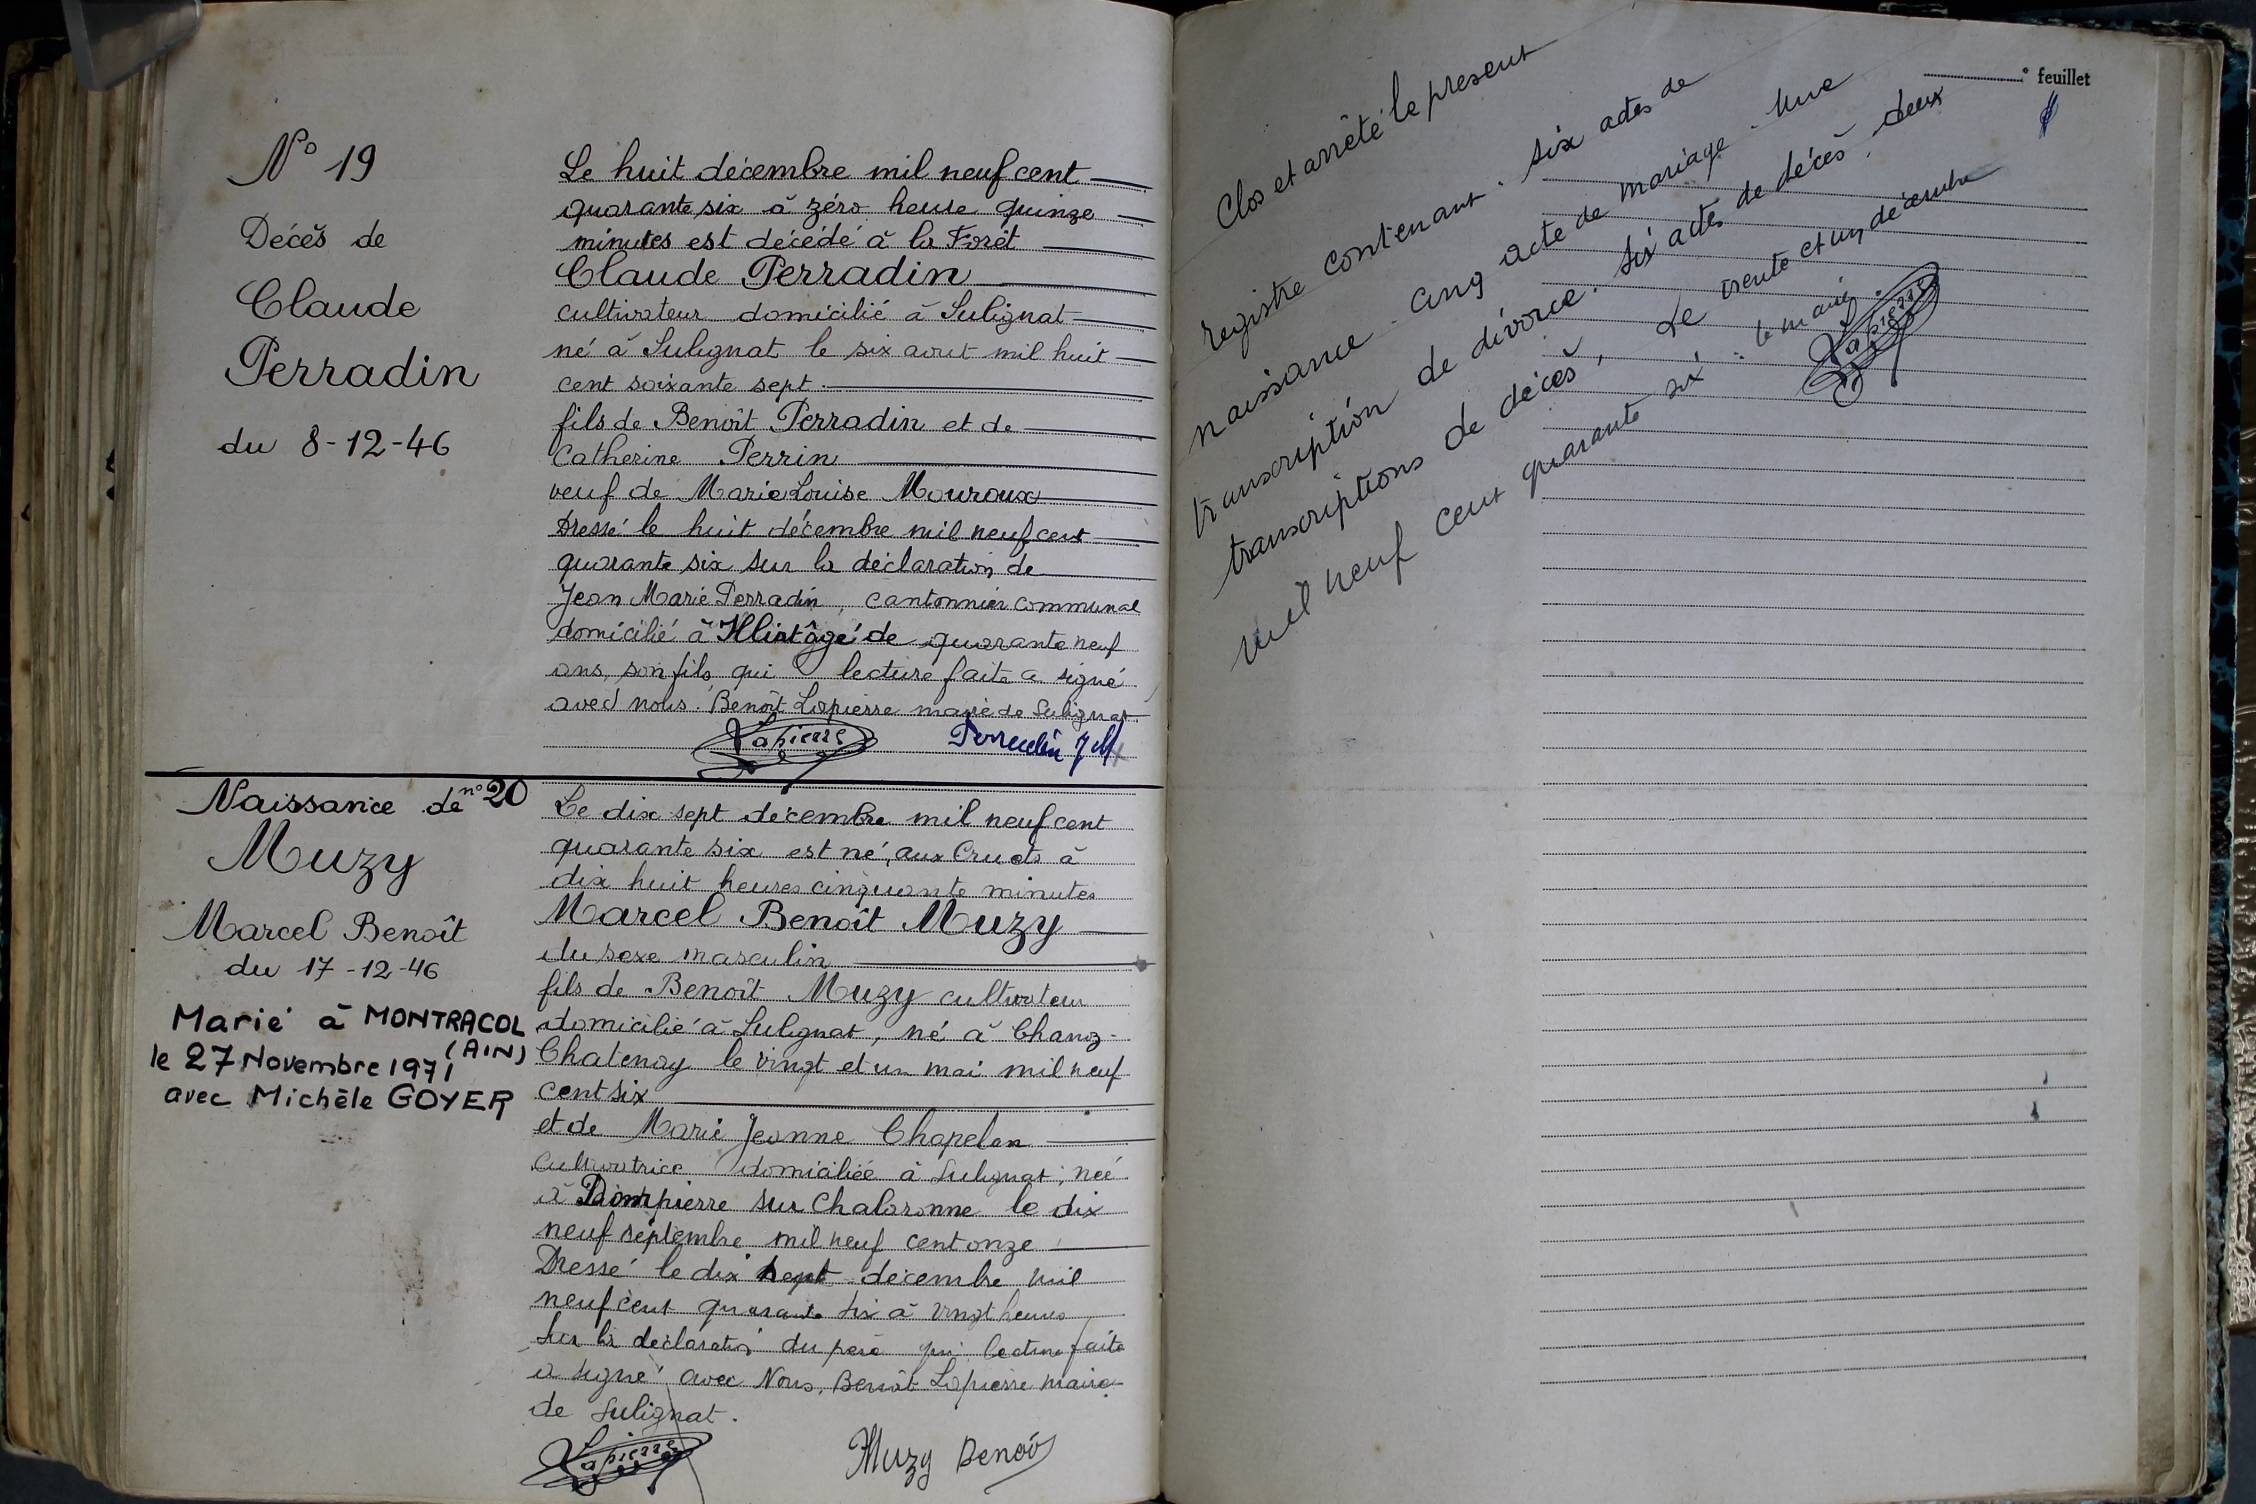 N° 19
Décès de
Claude
Perradin
du 8-12-46
Le huit décembre mil neuf cent
quarante six à zéro heure quinze
minutes est décédé à la Forêt
Claude Perradin
cultivateur domicilié à Sulignat
né à Sulignat le six aout mil huit
cent soixante sept.
fils de Benoît Perradin et de
Catherine Perrin
veuf de Marie Louise Mouroux
Dressé le huit décembre mil neuf cent
quarante six sur la déclaration de
Jean Marie Perradin, cantonnier communal
domicilié à Illiat âgé de quarante neuf
ans, son fils, qui lecture faite a signé
avec nous. Benoît Lapierre maire de Sulignat.
Lapierre Perradin J M
Naissance de n° 20
Muzy
Marcel Benoît
du 17-12-46
Marié à MONTRACOL
(AIN)
le 27 Novembre 1971
avec Michèle GOYER
Le dix sept décembre mil neuf cent
quarante six est né, aux Cruets à
dix huit heures cinquante minutes
Marcel Benoît Muzy
du sexe masculin
fils de Benoît Muzy cultivateur
domicilié à Sulignat, né à Chanoz-
Chatenay le vingt et un mai mil neuf
cent six
et de Marie Jeanne Chapelan
cultivatrice domiciliée à Sulignat, née
à Dompierre sur Chalaronne le dix
neuf septembre mil neuf cent onze
Dressé le dix sept décembre mil
neuf cent quarante six à vingt heures
sur la déclaration du père qui lecture faite
a signé avec Nous, Benoît Lapierre maire
de Sulignat.
Lapierre Muzy Benoît
° feuillet
Clos et arrêté le present
registre contenant. six actes de
naissance - cinq acte de mariage - une
transcription de divorce. six actes de décès, deux
transcriptions de décès, Le trente et un décembre
mil neuf cent quarante six. le maire.
Lapierre